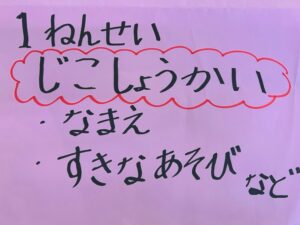 1ねんせい
じこしょうかい
・なまえ
・すきなあそび
など